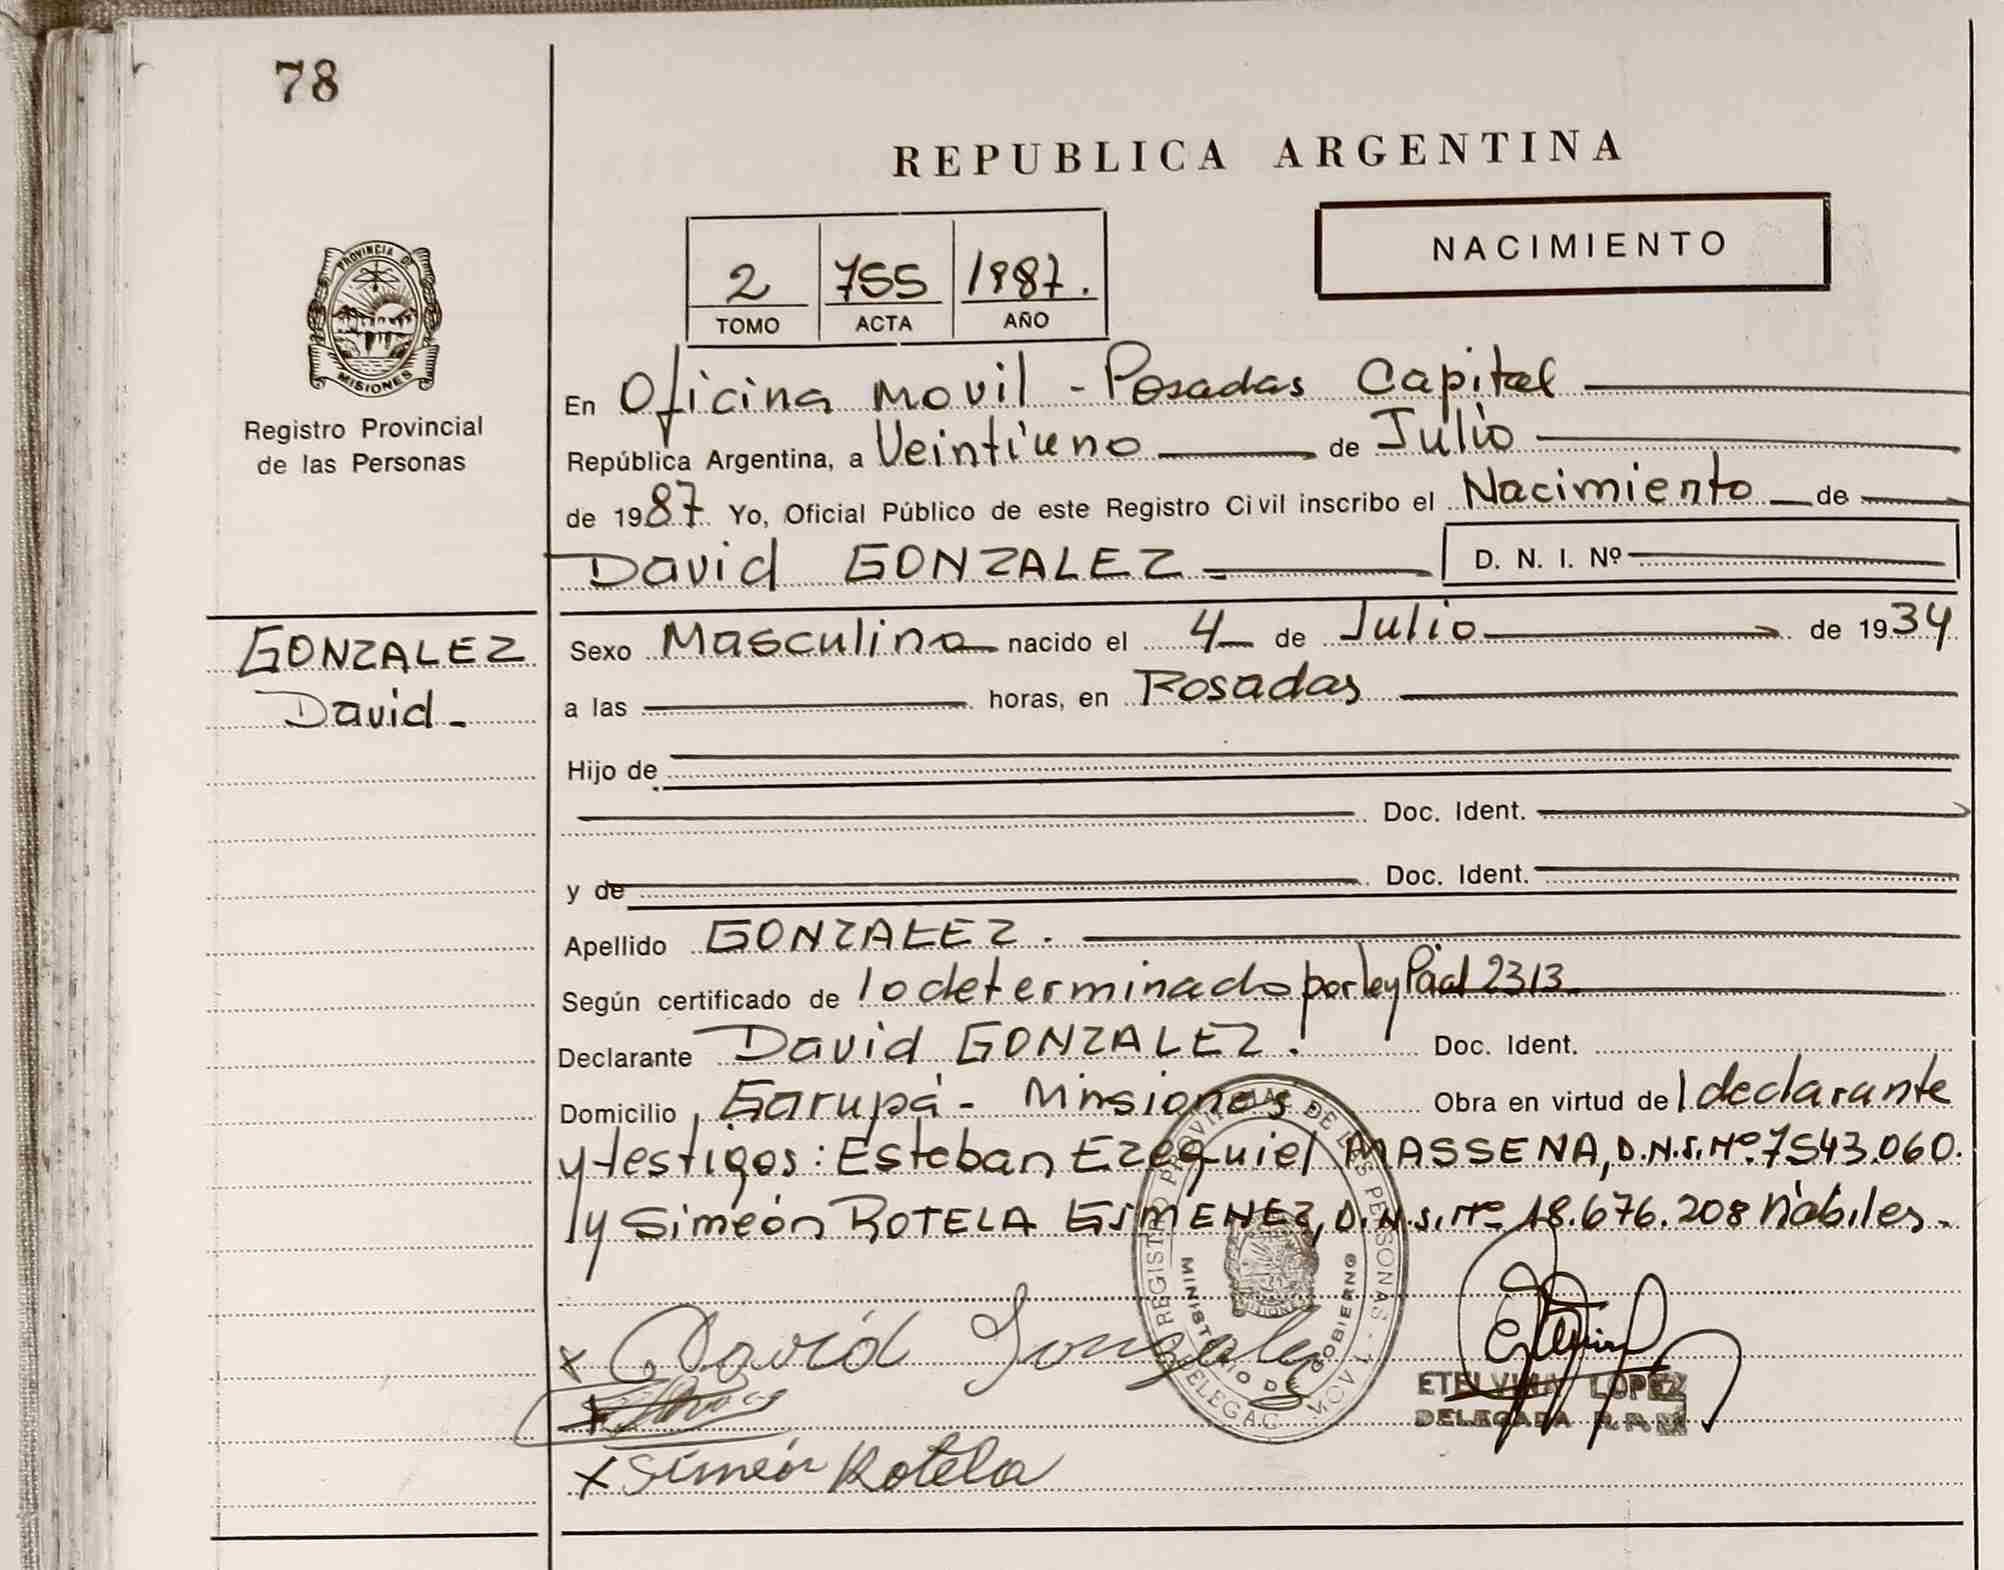 78
REPUBLICA ARGENTINA
NACIMIENTO
2 755 1987.
TOMO ACTA AÑO
PROVINCIA DE
MISIONES
Registro Provincial
de las Personas
En Oficina Movil - Posadas Capital
República Argentina, a Veintiuno de Julio
de 1987 Yo, Oficial Público de este Registro Civil inscribo el Nacimiento de
David GONZALEZ D. N. I. Nº
GONZALEZ
David -
Sexo Masculino nacido el 4 de Julio de 1934
a las horas, en Posadas
Hijo de
Doc. Ident.
y de Doc. Ident.
Apellido GONZALEZ.
Según certificado de lo determinado por ley Pcial 2313
Declarante David GONZALEZ. Doc. Ident.
Domicilio Garupá - Minsiones Obra en virtud del declarante
y testigos: Esteban Ezequiel MASSENA, D.N.I. Nº 7543.060.
y Simeón ROTELA GIMENEZ, D.N.I. Nº 18.676.208 hábiles.
REGISTRO PROVINCIAL DE LAS PERSONAS
MINISTERIO DE GOBIERNO
DELEGAC. MOVIL
x David Gonzalez
ETELVINA LOPEZ
DELEGADA R.P.M
x Simeón Rotela